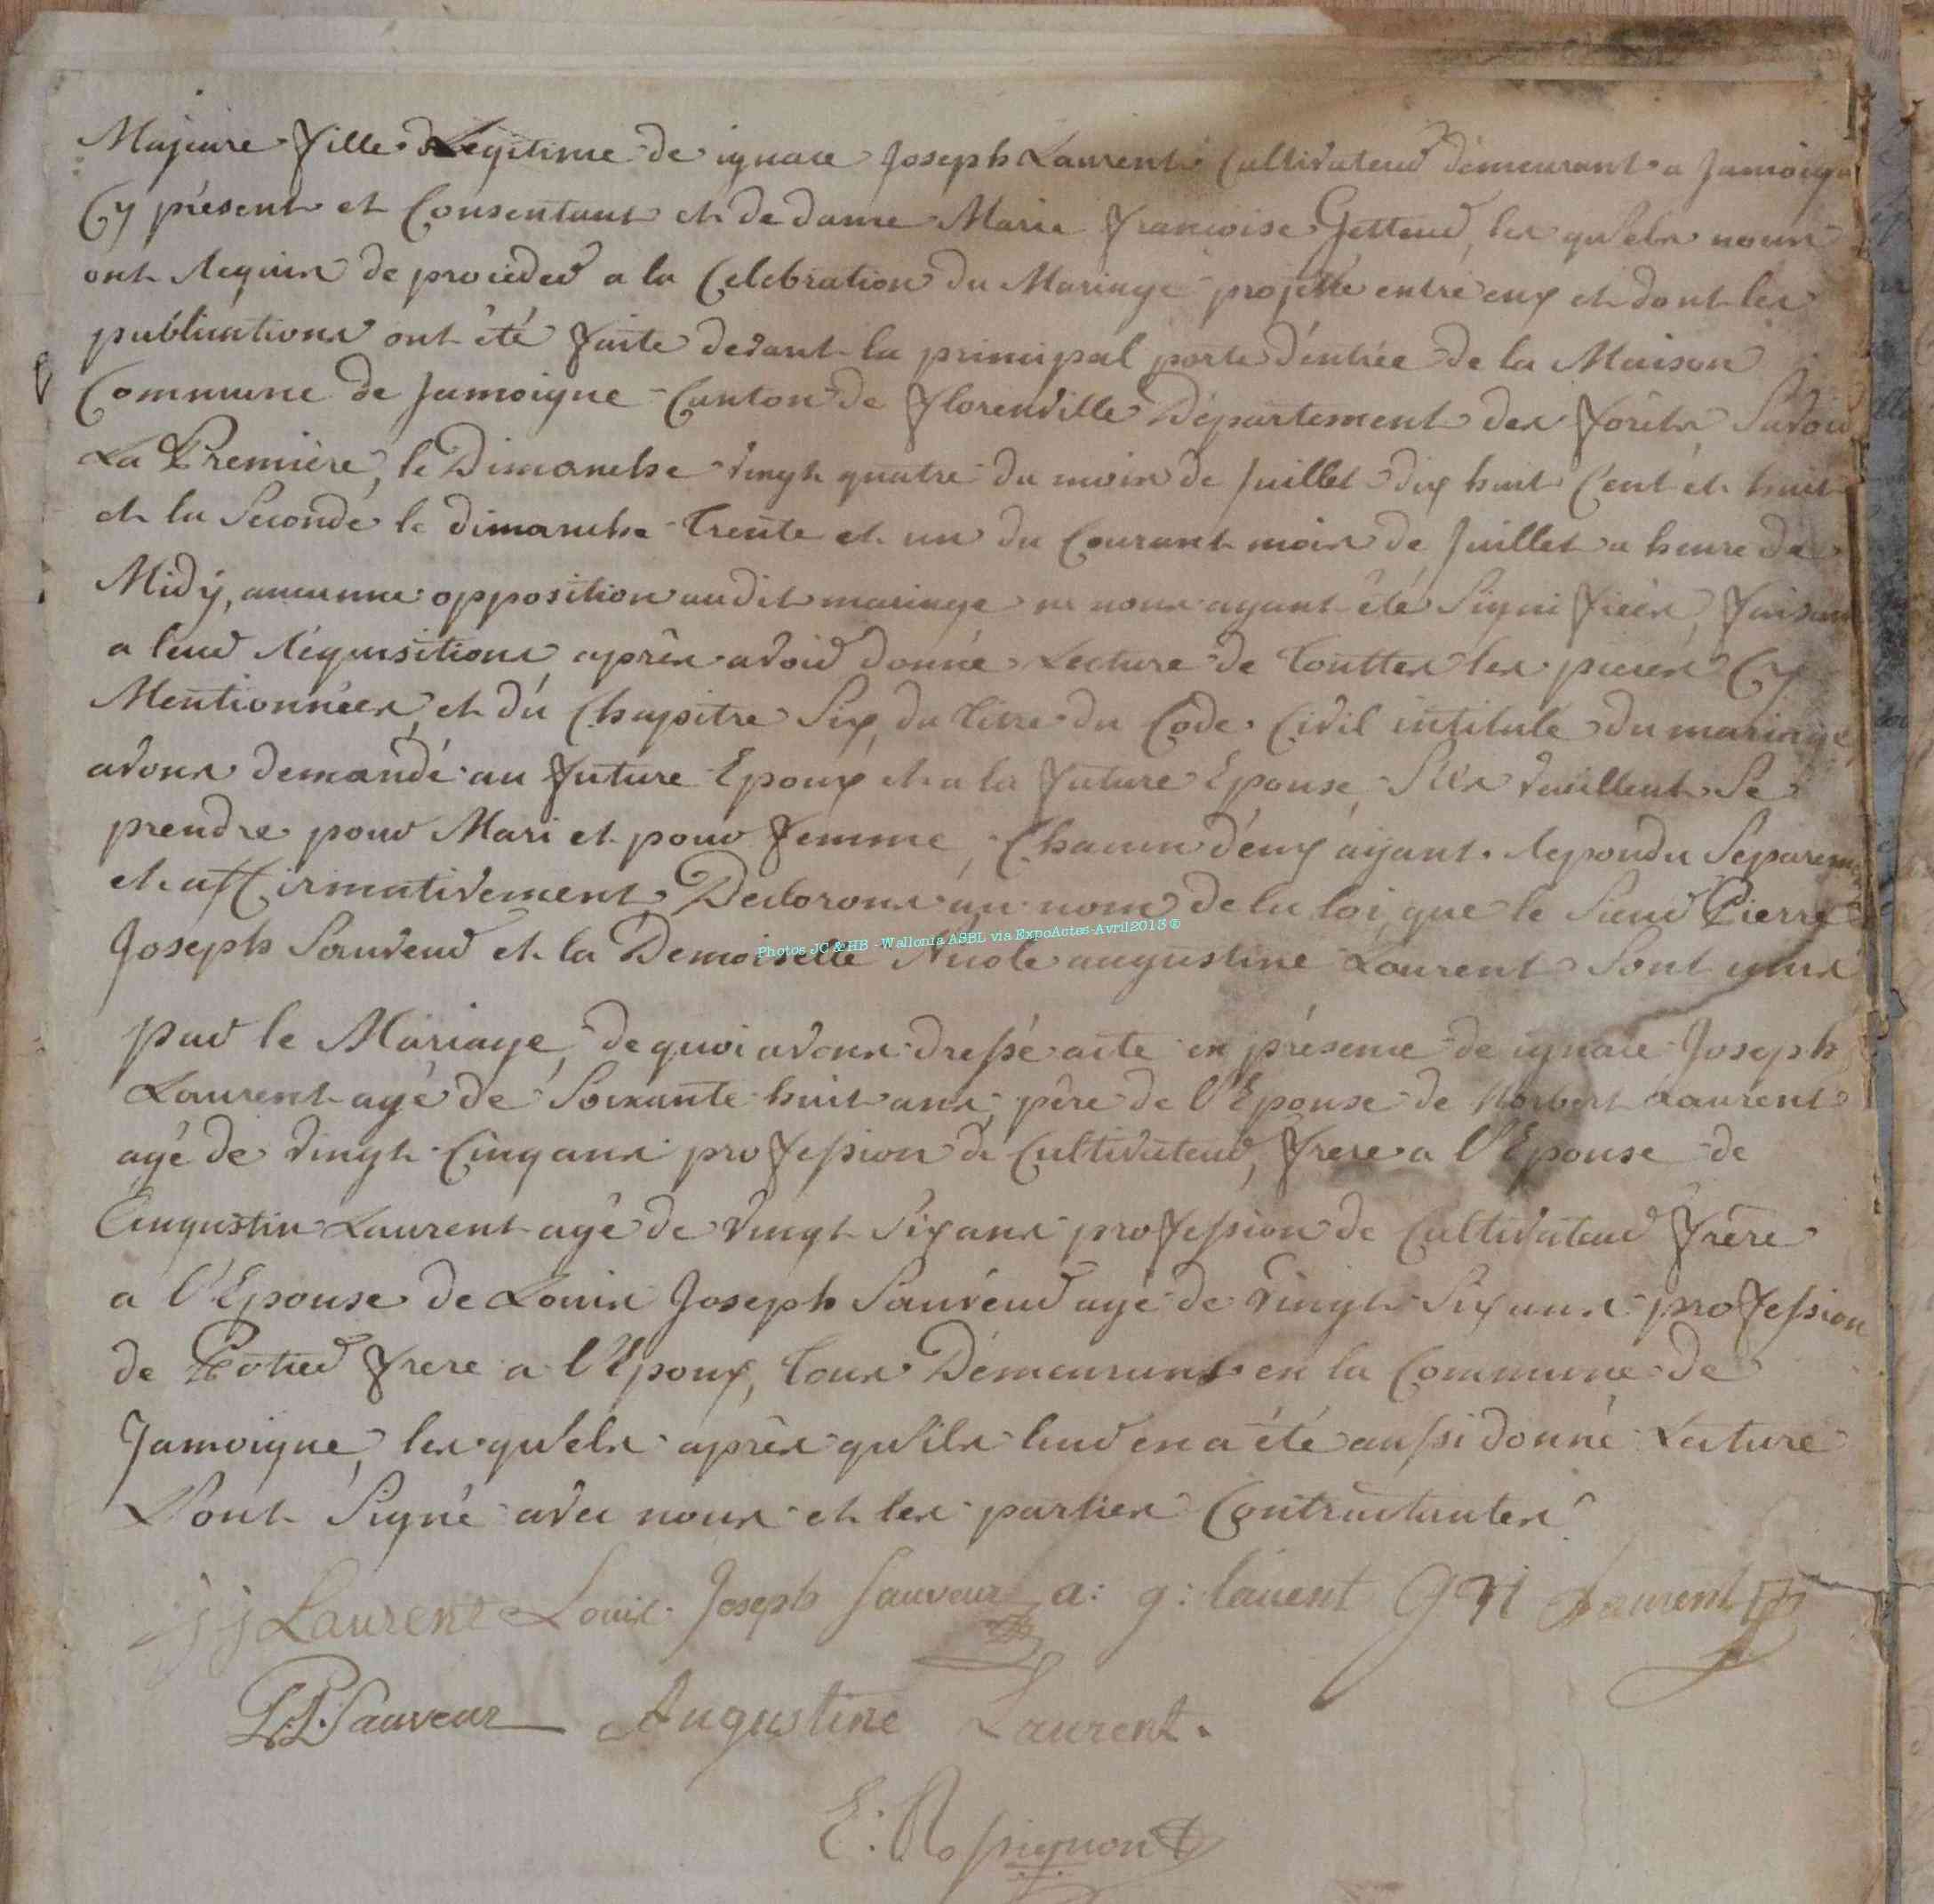 Majeure fille Legitime de ignace Joseph Laurent Cultivateur demeurant a Jamoigne
Cy présent et Consentant et de dame Marie francoise Getteur, les qu'els nous
ont Requis de proceder a la Celebration du Mariage projetté entre eux et dont les
publications ont été faite devant la principal porte d'entrée de la Maison
Commune de Jamoigne Canton de florenville Département des forêts, Savoir
La Premiere, le Dimanche vingt quatre du mois de Juillet dix huit Cent et huit
et la Seconde le dimanche Trente et un du Courant mois de Juillet a heure de
Midÿ, aucunne opposition audit mariage ne nous ayant été Signifiées, faisant
a leur réquisitions, après avoir donné Lecture de Touttes les pieces Cy
Mentionnées, et du Chapitre Six, du titre du Code Civil intitulé du mariage,
avons demandé au future Epoux et a la future Epouse, S'ils veuillent Se
prendre pour Mari et pour femme, Chacun d'eux aÿant repondu Separement
et affirmativement, Declarons au nom de la loi, que le Sieur Pierre
Photos JC & HB - Wallonia ASBL via ExpoActes-Avril2013 ©
Joseph Sauveur et la Demoiselle Nicole augustine Laurent Sont unis
par le Mariage, de quoi avons dressé acte en présence de ignace Joseph
Laurent agé de Soixante huit ans, père de l'Epouse de Norbert Laurent
agé de vingt Cinq ans profession de Cultivateur, frere a l'Epouse de
Augustin Laurent agé de vingt Six ans profession de Cultivateur frère
a l'Epouse de Louis Joseph Sauveur agé de vingt Six ans profession
de Potier frere a l'Epoux, tous Demeurant en la Commune de
Jamoigne, les qu'els après qu'ils leur en a été aussi donné Lecture
L'ont Signé avec nous et les parties Contractantes
j j Laurent Louis Joseph Sauveur a: g: lauent Laurent
P.J. Sauveur Augustine Laurent.
E: Rossignon